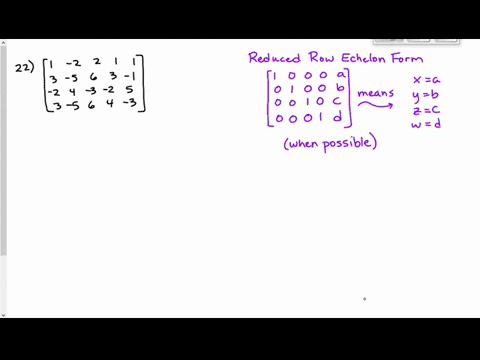 22) [1 -2 2 1 1
3 -5 6 3 -1
-2 4 -3 -2 5
3 -5 6 4 -3]
Reduced Row Echelon Form
[1 0 0 0 a
0 1 0 0 b
0 0 1 0 c
0 0 0 1 d]
means
x = a
y = b
z = c
w = d
(when possible)